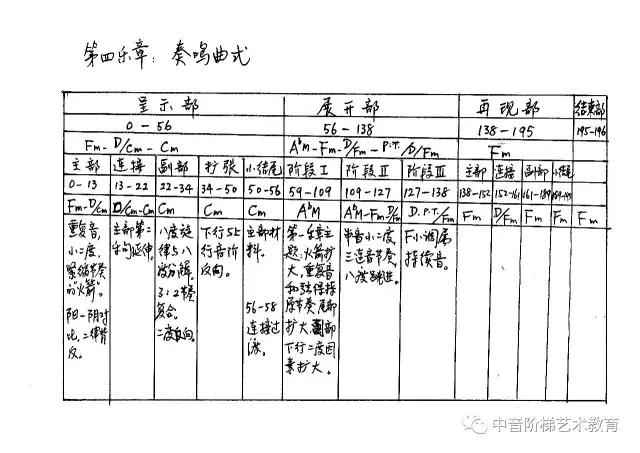 第四乐章：奏鸣曲式
呈示部 展开部 再现部 结束部
0-56 56-138 138-195 195-196
Fm-D/Cm-Cm AbM-Fm-D/Fm-P.T./D/Fm Fm
主部 连接 副部 扩张 小结尾 阶段I 阶段II 阶段III 主部 连接 副部 小结尾
0-13 13-22 22-34 34-50 50-56 59-109 109-127 127-138 138-152 152-161 161-189 189-195
Fm-D/Cm D/Cm-Cm Cm Cm Cm AbM AbM-Fm-D/Fm D.P.T/Fm Fm D/Fm Fm Fm Fm
重复音,
小二度,
紧缩节奏
的"火箭"。
阳-阴对
比,二律背
反。
主部第二
乐句延伸。
八度旋
律与八
度分解,
3:2节奏
复合。
二度反向。
下行5比
行音阶
反向。
主部材
料。
56-58
连接过
渡。
第一乐章主
题:火箭扩
大,重复音
和弦保持
原节奏,尾部
扩大,副部
下行二度因
素扩大。
半音小二度,
三连音节奏,
八度跳进。
F小调属
持续音。
中音阶梯艺术教育